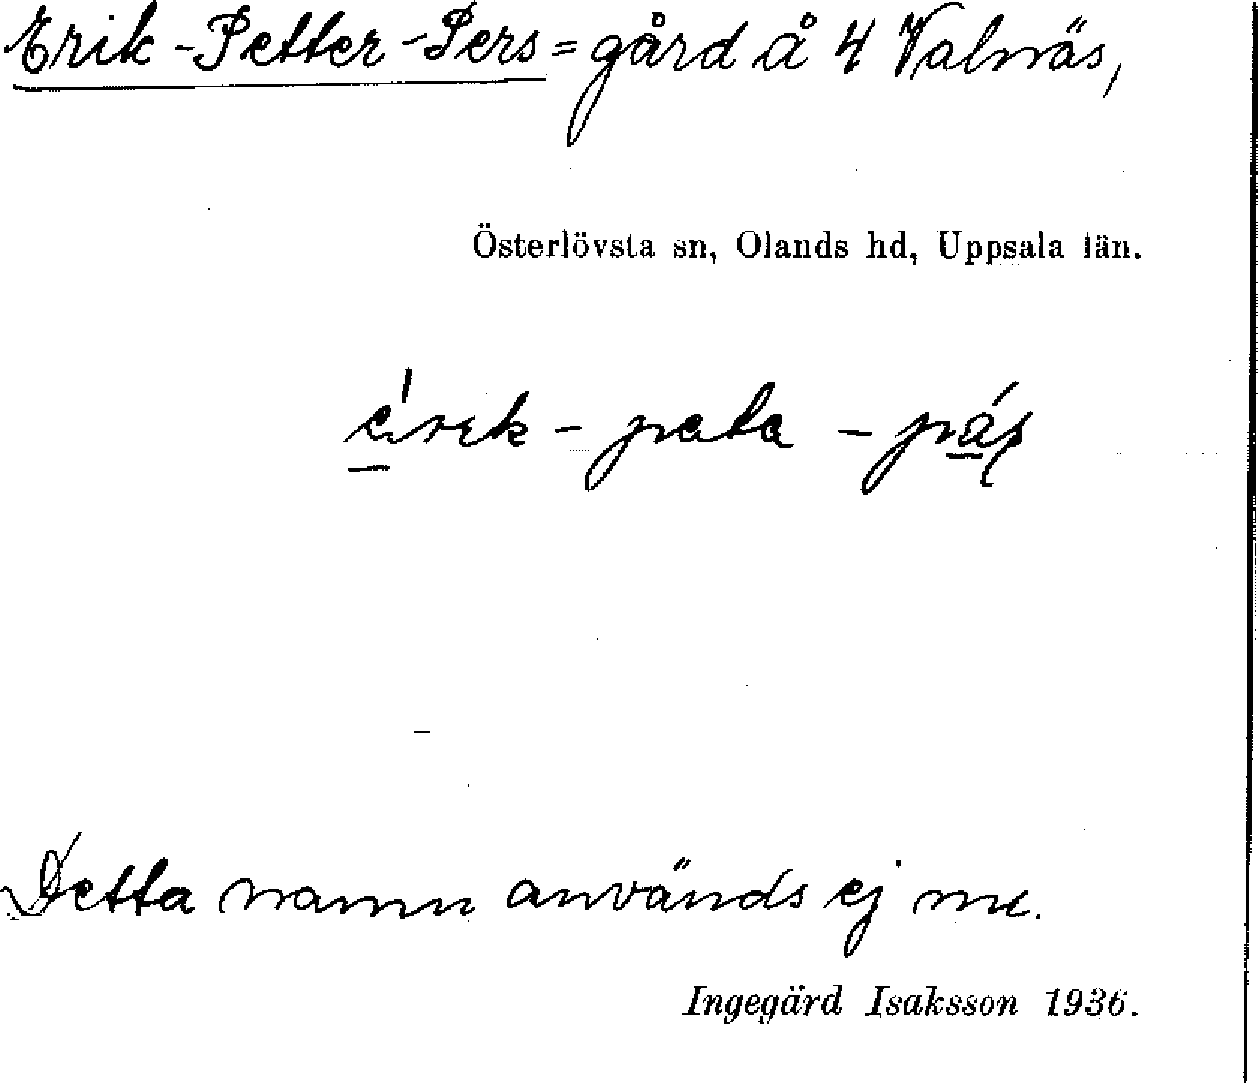 Erik-Petter-Pers = gård å 4 Valnäs,
Österlövsta sn, Olands hd, Uppsala län.
Detta namn används ej nu.
Ingegärd Isaksson 1936.